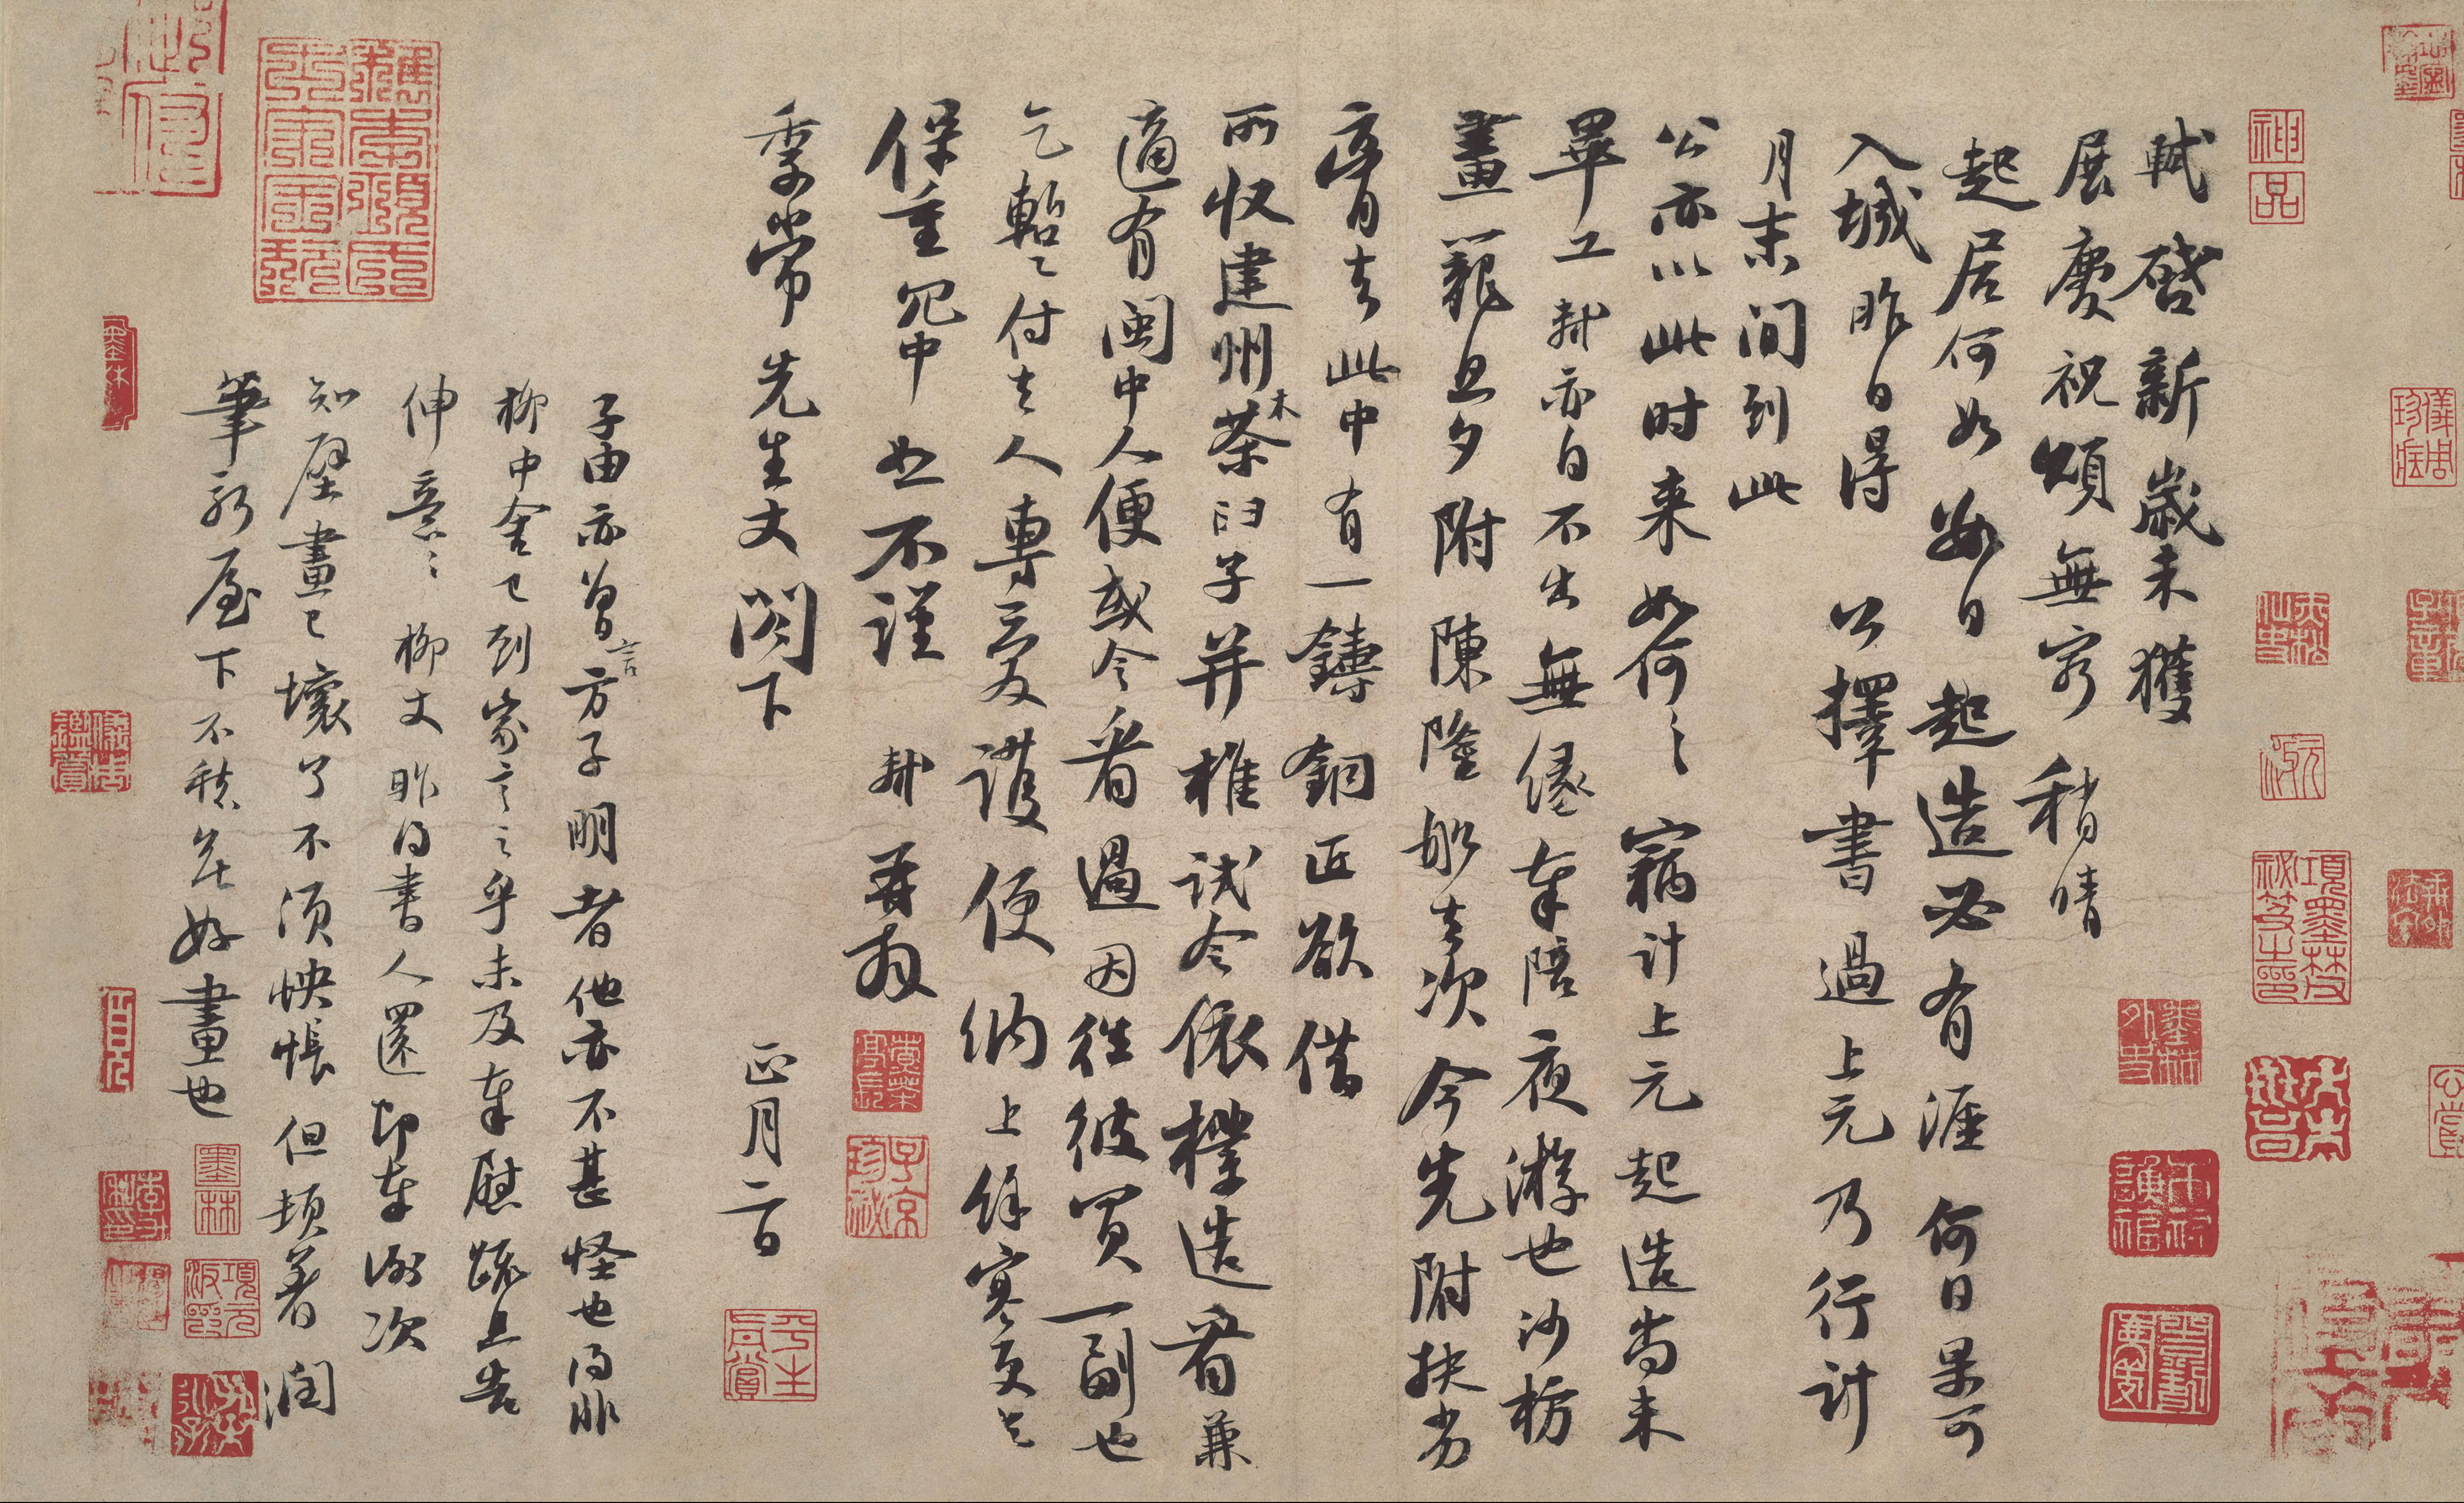 軾啓新歲未獲
展慶祝頌無窮稍晴
起居何如數日起造必有涯何日果可
入城昨日得公擇書過上元乃行計
月末間到此
公亦以此時来如何〻竊計上元起造尚未
畢工軾亦自不出無緣奉陪夜游也沙枋
畫籠旦夕附陳隆舩去次今先附扶劣
膏去此中有一鑄銅匠欲借
所收建州木茶臼子并椎試令依樣造看兼
適有閩中人便或令看過因往彼買一副也
乞暫付去人專爱護便納上餘寒更乞
保重冗中恕不謹軾再拜
季常先生丈閤下正月二日
子由亦曾言方子明者他亦不甚怪也得非
柳中舍已到家言之乎未及奉慰疏且告
伸意〻柳丈昨得書人還即奉謝次
知壁畫已壞了不須怏悵但頓著潤
筆新屋下不愁無好畫也
神
品
墨林
項墨林父秘笈之印
子京珍秘
平生真賞
項元汴印
儀周鑑賞